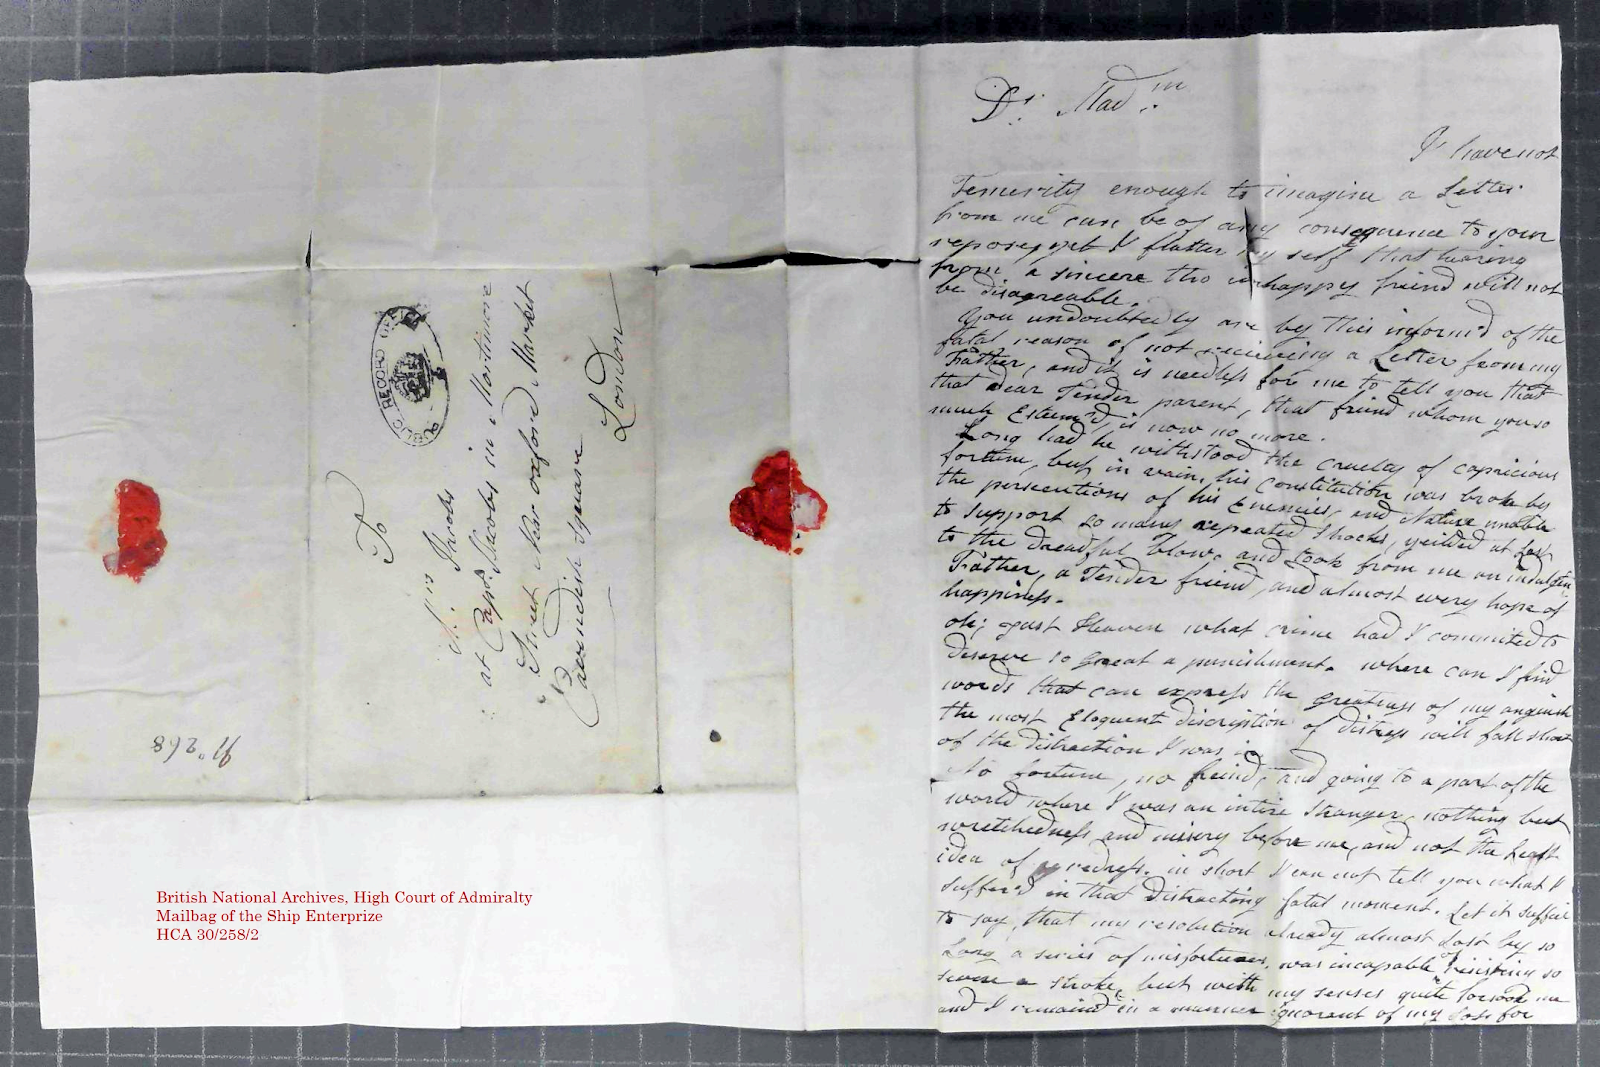 To
Mrs. Jacobs
at Captn. Jacobs in Mortimore
Street Near oxford Market
Cavendish Square
London
PUBLIC RECORD OFFICE
No. 268
Dr. Madm.
I have not
Temerity enough to imagine a Letter
from me can be of any consequence to your
repose, yet I flatter my self that hearing
from a sincere tho unhappy friend will not
be disagreable.
You undoubtedly are by this inform'd of the
fatal reason of not recieveing a Letter from my
Father, and it is needless for me to tell you that
that dear Tender parent, that friend whom you so
much Esteem'd, is now no more.
Long had he withstood the cruelty of capricious
fortune, but in vain, his Constitution was broke by
the persecutions of his Enemies, and Nature unable
to support so many repeated Shocks, yeilded at Last
to the dreadful blow, and took from me an indulgen
Father, a Tender friend, and almost every hope of
happiness.
oh; Just Heaven what crime had I committed to
deserve so great a punishment. where can I find
words that can express the greatness of my anguish
the most Eloquent discription of distress will fall short
of the distraction I was in
No fortune, no freind, and going to a part of the
world where I was an intire Stranger, nothing but
wretchedness and misery before me, and not the Least
idea of redress. in short I can not tell you what I
suffer'd in that distracting fatal moment. Let it suffice
to say, that my resolution already almost Lost by so
Long a series of misfortunes, was incapable resisting so
severe a stroke, but with my senses quite forsook me
and I remain'd in a manner ignorant of my Loss for
British National Archives, High Court of Admiralty
Mailbag of the Ship Enterprize
HCA 30/258/2